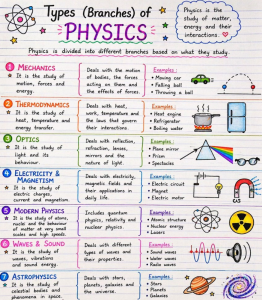 Types (Branches) of
PHYSICS
Physics is the
study of matter,
energy and their
interactions.
Physics is divided into different branches based on what they study.
1 MECHANICS
It is the study of
motion, forces and
energy.
Deals with the motion
of bodies, the forces
acting on them and
the effects of forces.
Examples :
Moving car
Falling ball
Throwing a ball
2 THERMODYNAMICS
It is the study of
heat, temperature and
energy transfer.
Deals with heat,
work, temperature and
the laws that govern
their interactions.
Examples :
Heat engine
Refrigerator
Boiling water
3 OPTICS
It is the study of
light and its
behaviour.
Deals with reflection,
refraction, lenses,
mirrors and the
nature of light.
Examples :
Plane mirror
Prism
Spectacles
4 ELECTRICITY &
MAGNETISM
It is the study of
electric charges,
current and magnetism.
Deals with electricity,
magnetic fields and
their applications in
daily life.
Examples :
Electric circuit
Magnet
Electric motor
5 MODERN PHYSICS
It is the study of atoms,
nuclei and the behaviour
of matter at very small
scales and high speeds.
Includes quantum
physics, relativity and
nuclear physics.
Examples :
Atomic structure
Nuclear energy
Lasers
6 WAVES & SOUND
It is the study of
waves, vibrations
and sound energy.
Deals with different
types of waves and
their properties.
Examples :
Sound waves
Water waves
Radio waves
7 ASTROPHYSICS
It is the study of
celestial bodies and
phenomena in space.
Deals with stars,
planets, galaxies and
the universe.
Examples :
Stars
Planets
Galaxies